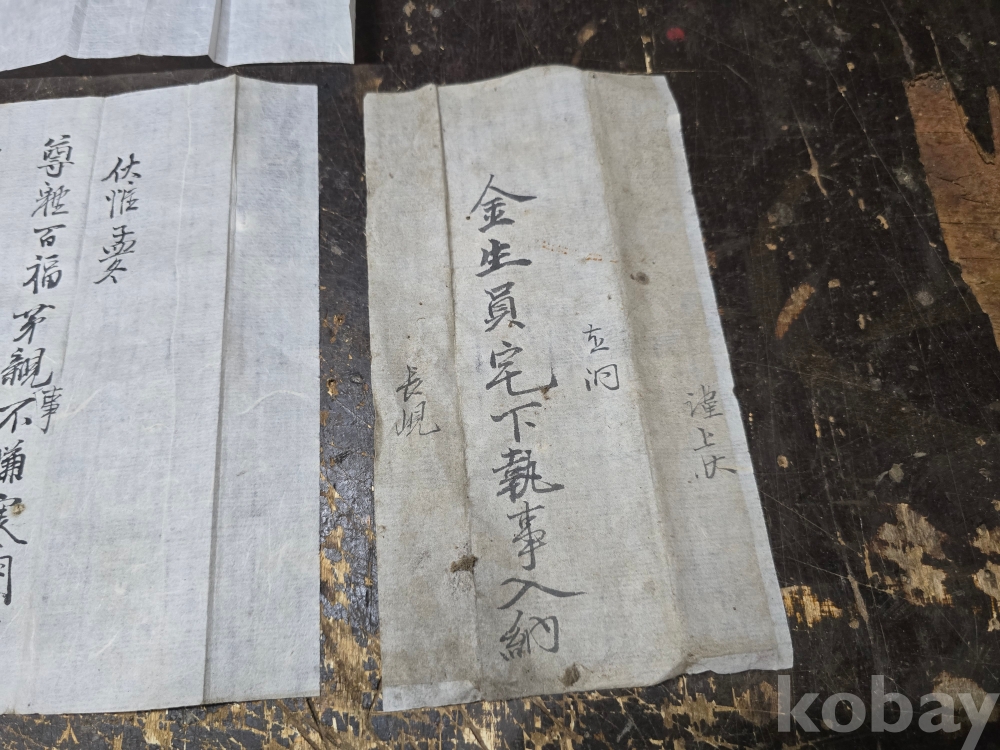 伏惟孟冬
尊軆百福第親事不嫌寒
謹上
左洞
金生員宅下執事入納
長峴
kobay